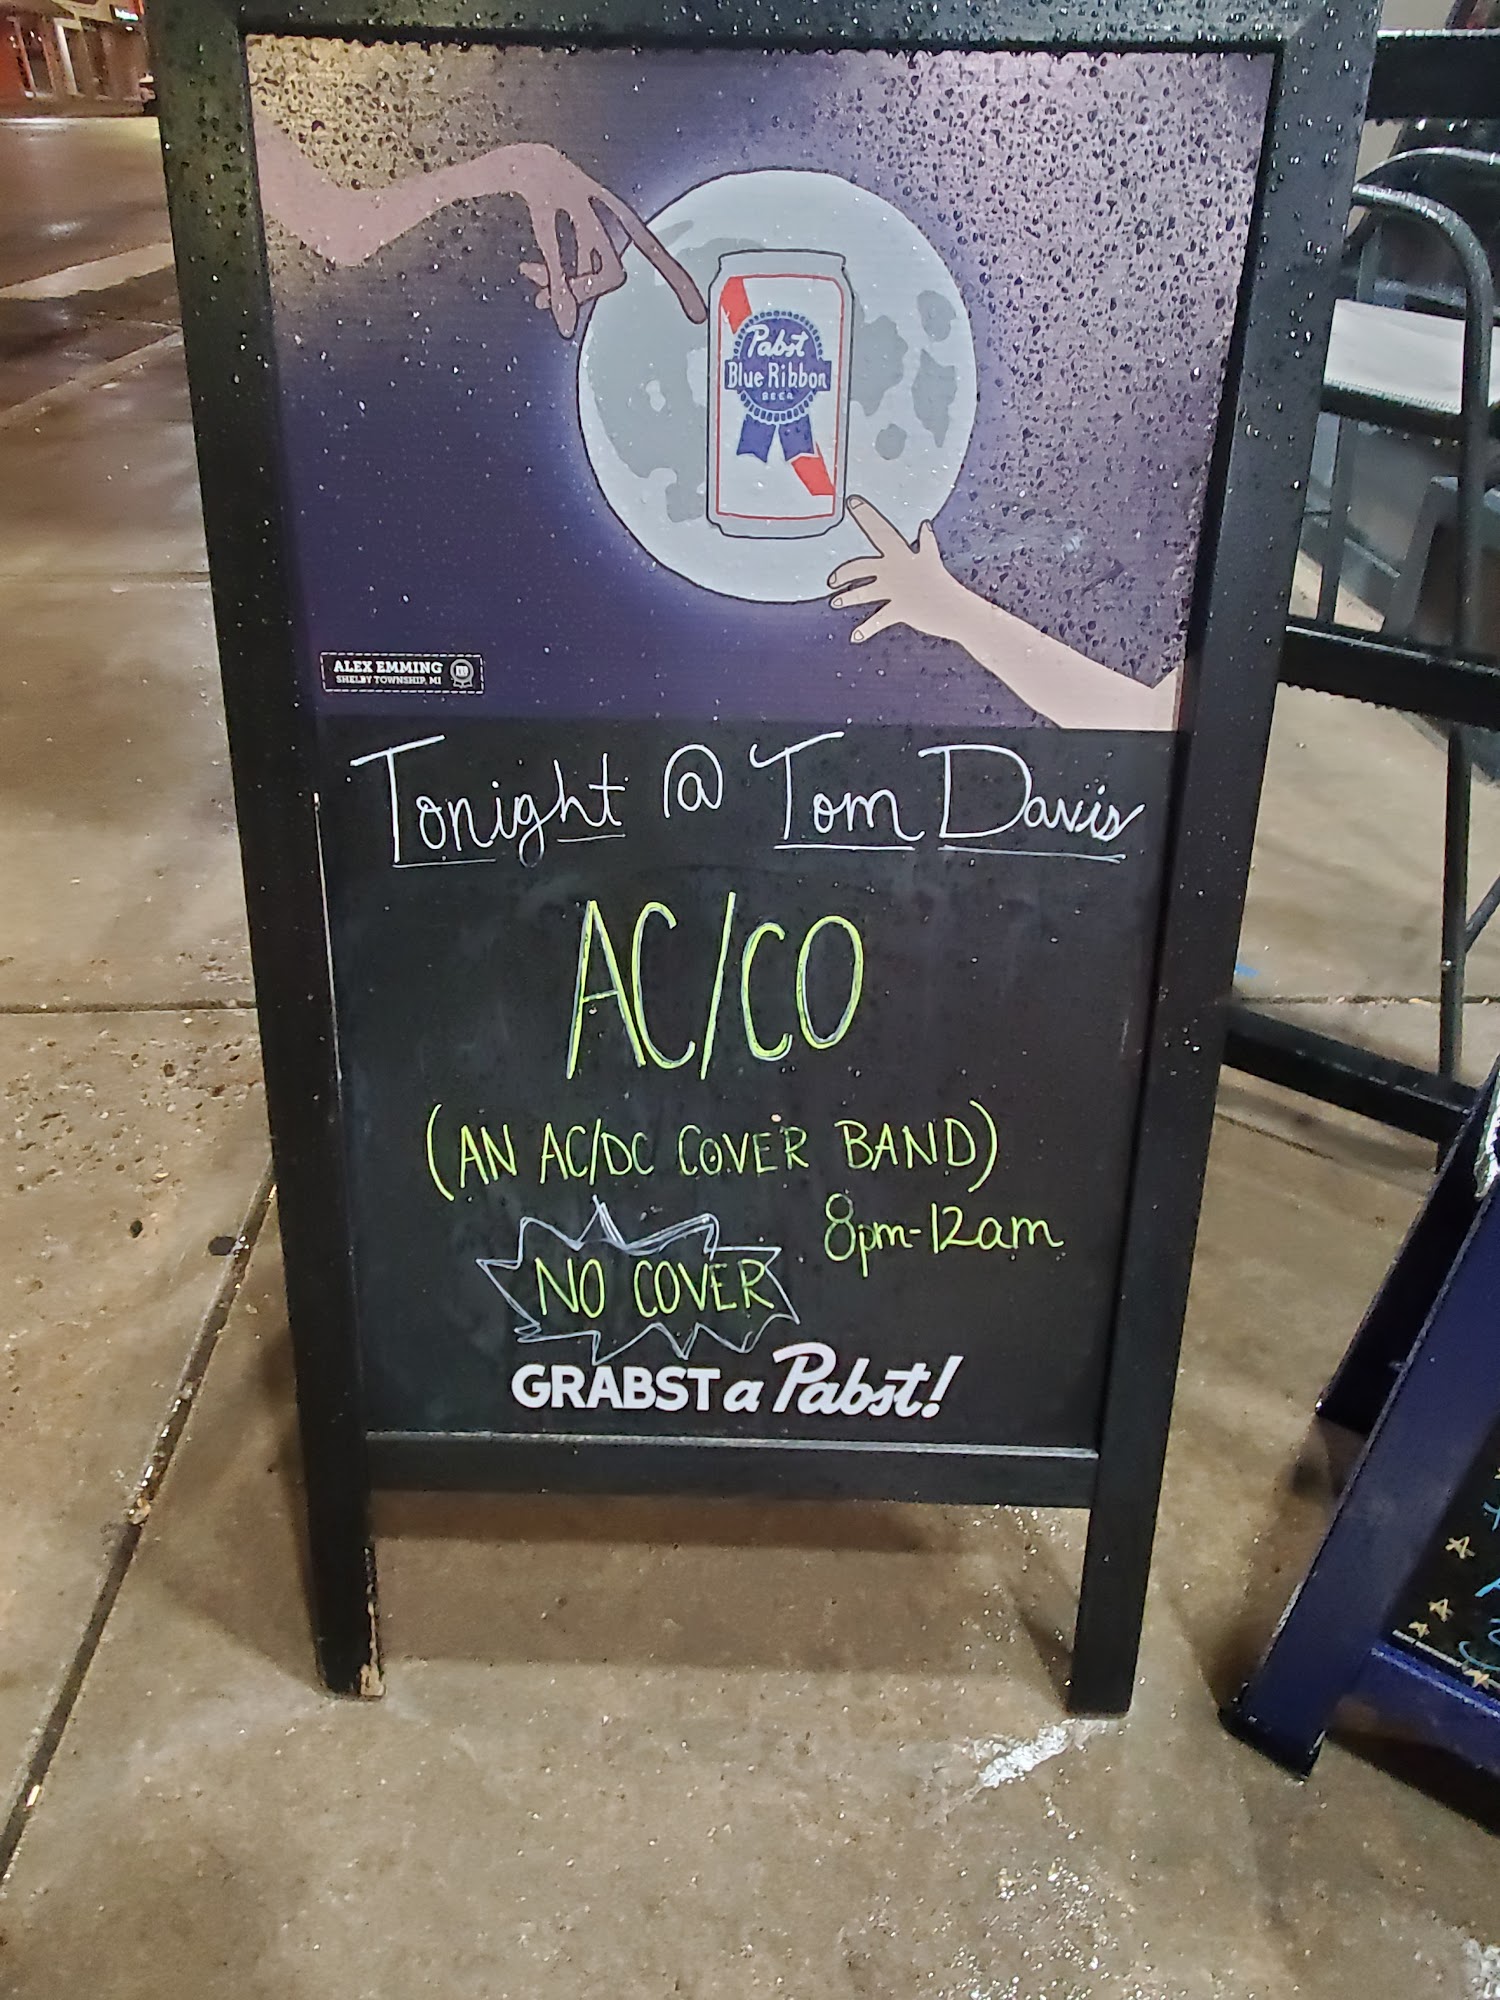 Pabst
Blue Ribbon
BEER
ALEX EMMING
SHELBY TOWNSHIP, MI
Tonight @ Tom Davis
AC/CO
(AN AC/DC COVER BAND)
8pm-12am
NO COVER
GRABST a Pabst!